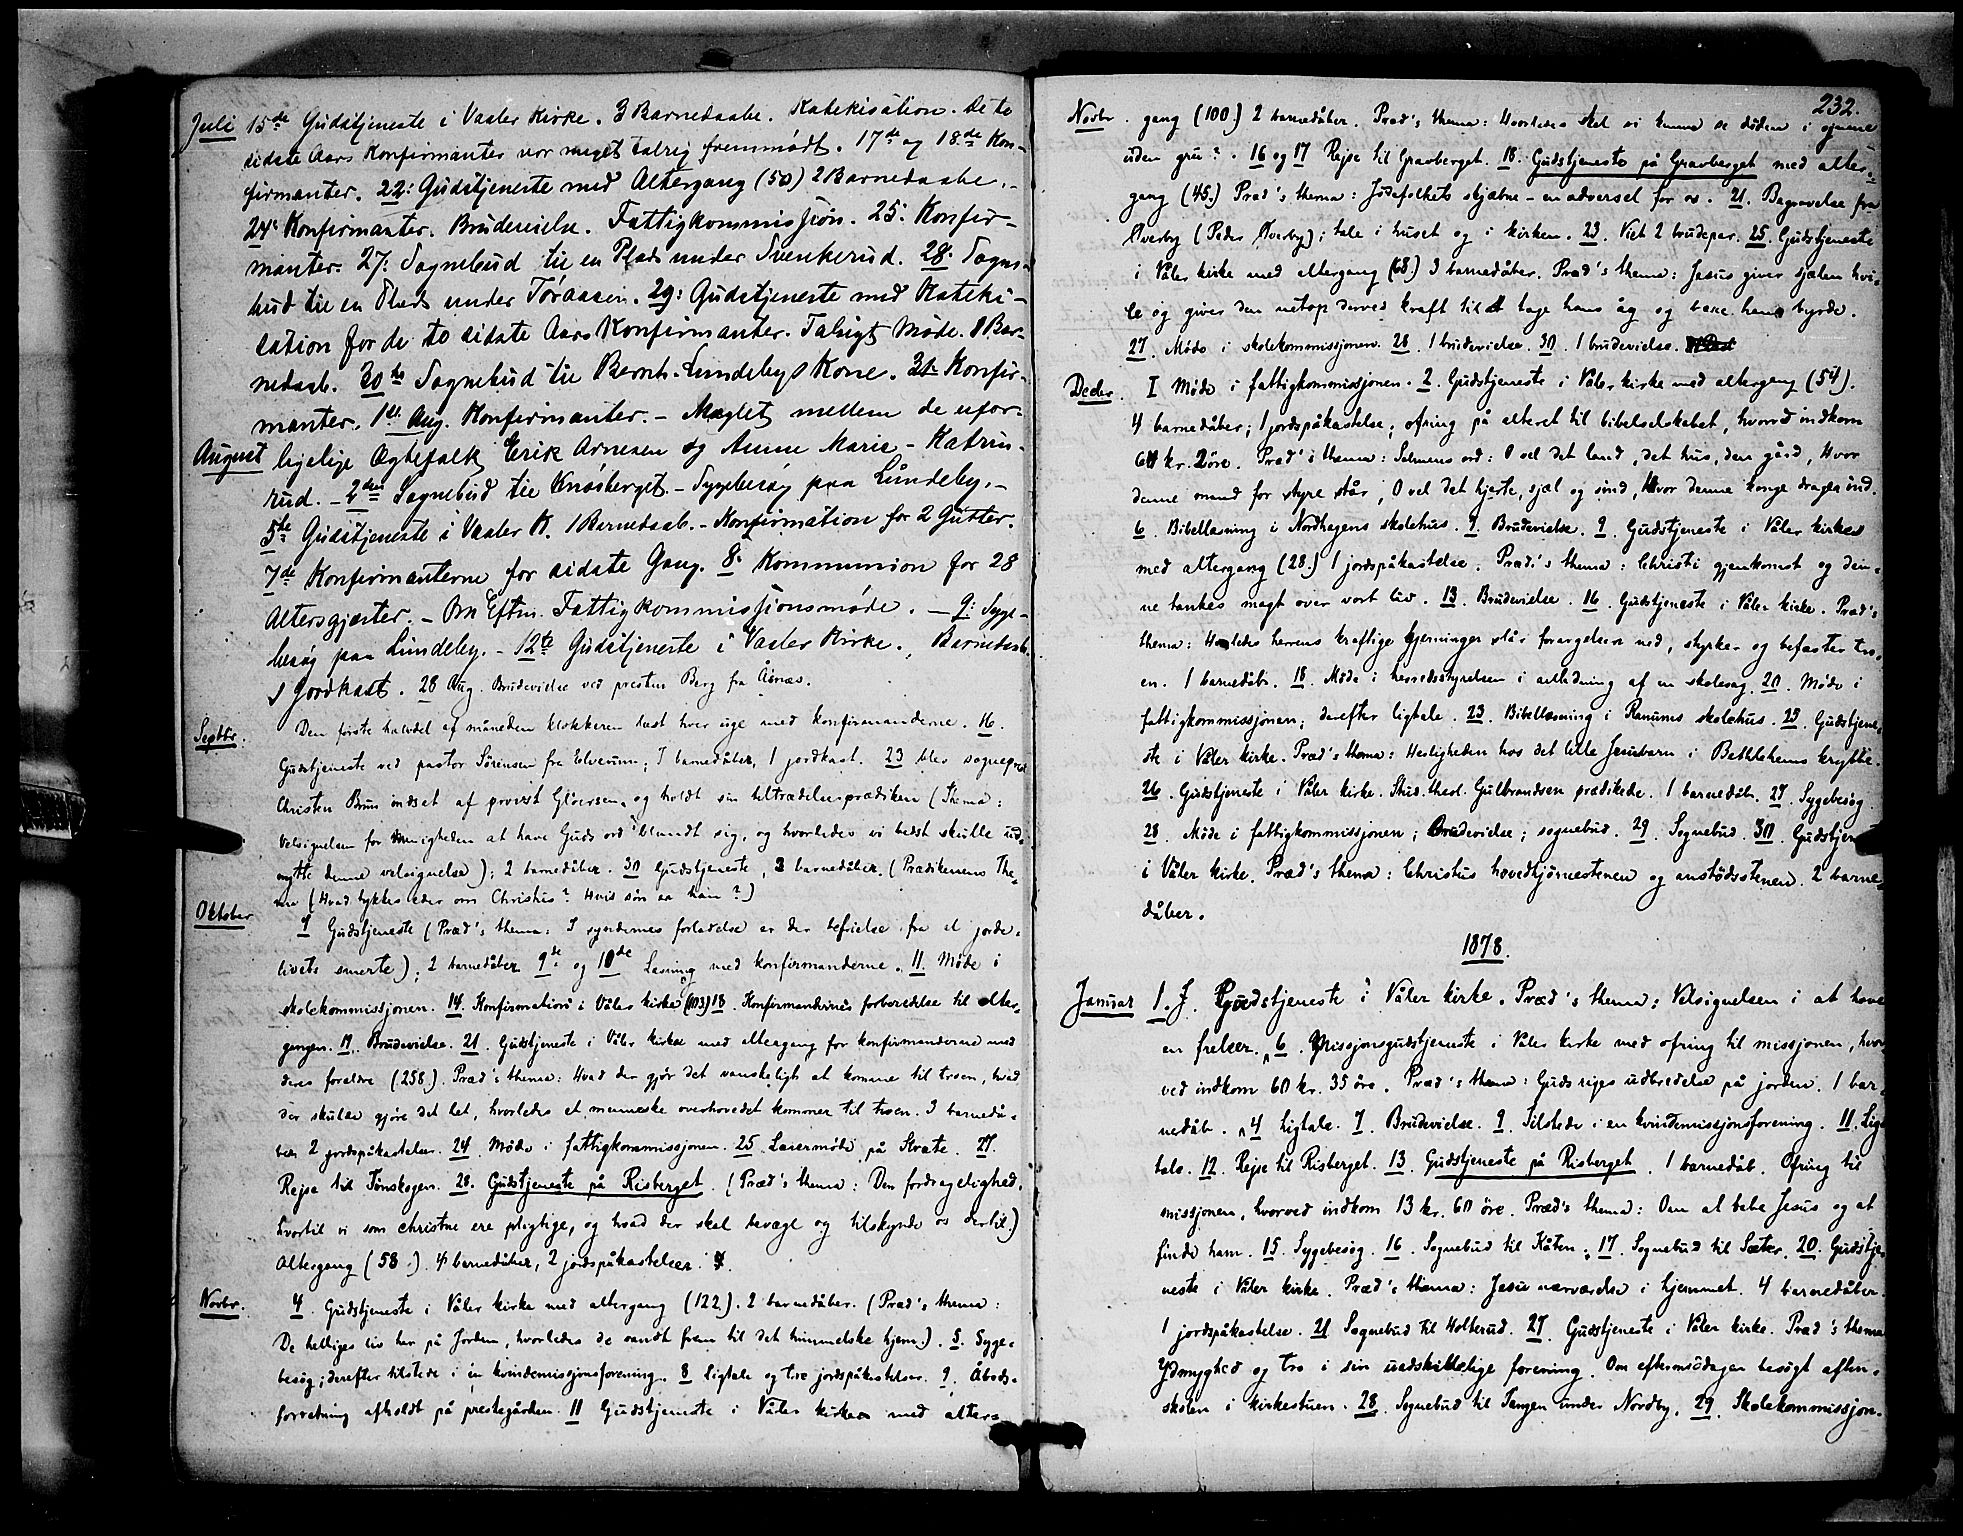 Juli 15de Gudstjeneste i Vaaler Kirke. 3 Barnedaabe. Katekisation. De to
sidste Aars Konfirmanter var meget talrig fremmødt. 17de og 18de Kon-
firmanter. 22: Gudstjeneste med Altergang (50) 2 Barnedaabe. -
24: Konfirmanter. Brudevielse. Fattigkommissjon. 25: Konfir-
manter. 27: Sognebud til en Plads under Svenkerud. 28: Sogne-
bud til en Plads under Toraasen. 29: Gudstjeneste med Kateki-
sation for de to sidste Aars Konfirmanter. Talrigt Møde. 1 Bar-
nedaab. 30te Sognebud til Bernh. Lundebys Kone. 31: Konfir-
manter. 1ste Aug. Konfirmanter. - Mæglet mellem de ufor-
August ligelige Ægtefolk Erik Arnesen og Anne Marie - Katrin-
rud. - Sognebud til Knosberget. - Sygebesøg paa Lundeby. -
5te Gudstjeneste i Vaaler K. 1 Barnedaab. - Konfirmation for 2 Gutter.
7de Konfirmanterne for sidste Gang. 8: Kommunion for 28
Altersgjæster. - Om Eftm. Fattigkommissjonsmøde. - 9: Syge-
besøg paa Lundeby. - 12te Gudstjeneste i Vaaler Kirke., Barnedaab.
1 Jordkast. 28 Aug. Brudevielse ved presten Berg fra Åsnæs.
Septbr. Den første halvdel af måneden klokkeren læst hver uge med konfirmanderne. 16.
Gudstjeneste ved pastor Sørensen fra Elverum; 7 barnedåber, 1 jordkast. 23 blev sogneprest
Christen Brun indsat af provst Gløersen, og holdt sin tiltrædelsesprædiken (Thema:
Velsignelsen for menigheden at have Guds ord iblandt sig, og hvorledes vi bedst skulle ud-
nytte denne velsignelse); 2 barnedåber. 30 Gudstjeneste, 3 barnedåber. (Prædikenens The-
ma (Hvad tykkes eder om Christus? Hvis søn er han?)
Oktober 7 Gudstjeneste (Præd's thema: I syndernes forladelse er der befrielse fra al jorde-
livets smerte); 2 barnedåber 9de og 10de Læsning med konfirmanderne. 11. Møde i
skolekommissjonen. 14. Konfirmation i Våler kirke (103) 18. Konfirmandernes forberedelse til alter-
gangen. 19. Brudevielse. 21. Gudstjeneste i Våler kirke med altergang for konfirmanderne med
deres forældre (258). Præd's thema: Hvad der gjør det vanskeligt at komme til troen, hvad
der skulde gjøre det let, hvorledes et menneske overhovedet kommer til troen. 3 barnedå-
ber 2 jordspåkastelser. 24. Møde i fattigkommissjonen. 25. Lærermøde på Kvæte. 27.
Rejse til Finskogen. 28. Gudstjeneste på Risberget. (Præd's thema: Den fordragelighed,
hvortil vi som christne ere pligtige, og hvad der skal bevæge og tilskynde os dertil.)
Altergang (58.) 4 barnedåber, 2 jordspåkastelser.
Novbr. 4. Gudstjeneste i Våler kirke med altergang (122). 2 barnedåber. (Præd's thema:
De helliges liv her på Jorden, hvorledes de vandt frem til det himmelske hjem.). 5. Syge-
besøg; derefter tilstede i en kvindemissjonsforening. 8 ligtale og tre jordspåkastelser. 9. Åbods-
forretning afholdt på prestegården. 11 Gudstjeneste i Våler kirke med alter-
232.
Novbr. gang (100.) 2 barnedåber. Præd's thema: Hvorledes skal vi kunne se døden i øjnene
uden gru?. 16 og 17 Rejse til Gravberget. 18. Gudstjeneste på Gravberget med alter-
gang (45.) Præd's thema: Jødefolkets skjæbne - en advarsel for os. 21. Begravelse fra
Øverby (Peder Øverby); tale i huset og i kirken. 23. Viet 2 brudepar. 25. Gudstjeneste
i Våler kirke med altergang (68.) 3 barnedåber. Præd's thema: Jesus giver sjælen hvi-
le og giver den netop derved kraft til at tage hans åg og bære hans byrde.
27. Møde i skolekommissjonen. 28. 1 brudevielse. 30. 1 brudevielse.
Decbr. 1 Møde i fattigkommissjonen. 2. Gudstjeneste i Våler kirke med altergang (54).
4 barnedåber; 1 jordspåkastelse; ofring på alteret til bibelselskabet, hvorved indkom
kr. 2 öre. Præd's thema: Salmens ord: O vel det land, det hus, den gård, Hvor
denne mand for styre står, O vel det hjerte, sjæl og sind, Hvor denne konge drager ind.
6. Bibellæsning i Nordhagens skolehus. 9. Brudevielse. 9. Gudstjeneste i Våler kirke
med altergang (28.) 1 jordspåkastelse. Præd's thema: Christi gjenkomst og den-
ne tankes magt over vort liv. 13. Brudevielse. 16. Gudstjeneste i Våler kirke. Præd's
thema: Hvorledes herrens kraftige gjerninger slår forargelsen ned, styrker og befæster tro-
en. 1 barnedåb. 18. Møde i herredsstyrelsen i anledning af en skolesag. 20. Møde i
fattigkommissjonen; derefter ligtale. 23. Bibellæsning i Ranums skolehus. 25. Gudstjene-
ste i Våler kirke. Præd's thema: Herligheden hos det lille Jesubarn i Bethlehems krybbe.
26. Gudstjeneste i Våler kirke. Stud. theol. Gulbrandsen prædikede. 1 barnedåb. 27. Sygebesøg.
28. Møde i fattigkommissjonen; Brudevielse; sognebud. 29. Sognebud. 30. Gudstjen
i Våler kirke. Præd's thema: Christus hovedhjørnestenen og anstødsstenen. 2 barne-
dåber.
1878.
Januar 1. Gudstjeneste i Våler kirke. Præd's thema: Velsignelsen i at have
en frelser. 6. Missjonsgudstjeneste i Våler kirke med ofring til missjonen, hvor
ved indkom 60 kr. 35 öre. Præd's thema: Guds riges udbredelse på jorden. 1 bar-
nedåb. 4 ligtale. 7. Brudevielse. 9. Tilstede i en kvindemissjonsforening. 11. Lig-
tale. 12. Rejse til Risberget. 13. Gudstjeneste på Risberget. 1 barnedåb. Ofring til
missjonen, hvorved indkom 13 kr. 60 öre. Præd's thema: Om at tabe Jesus og at
finde ham. 15. Sygebesøg. 16. Sognebud til Kåten. 17. Sognebud til Sæter. 20. Gudstje-
neste i Våler kirke. Præd's thema: Jesu nærværelse i hjemmet. 4 barnedåber.
1 jordspåkastelse. 21 Sognebud til Holterud. 27. Gudstjeneste i Våler kirke. Præd's thema
Ydmyghed og tro i sin uadskillelige forening. Om eftermiddagen besøgt aften-
skolen i kirkestuen. 28. Sognebud til Tangen under Nordby. 29. Skolekommissjon-